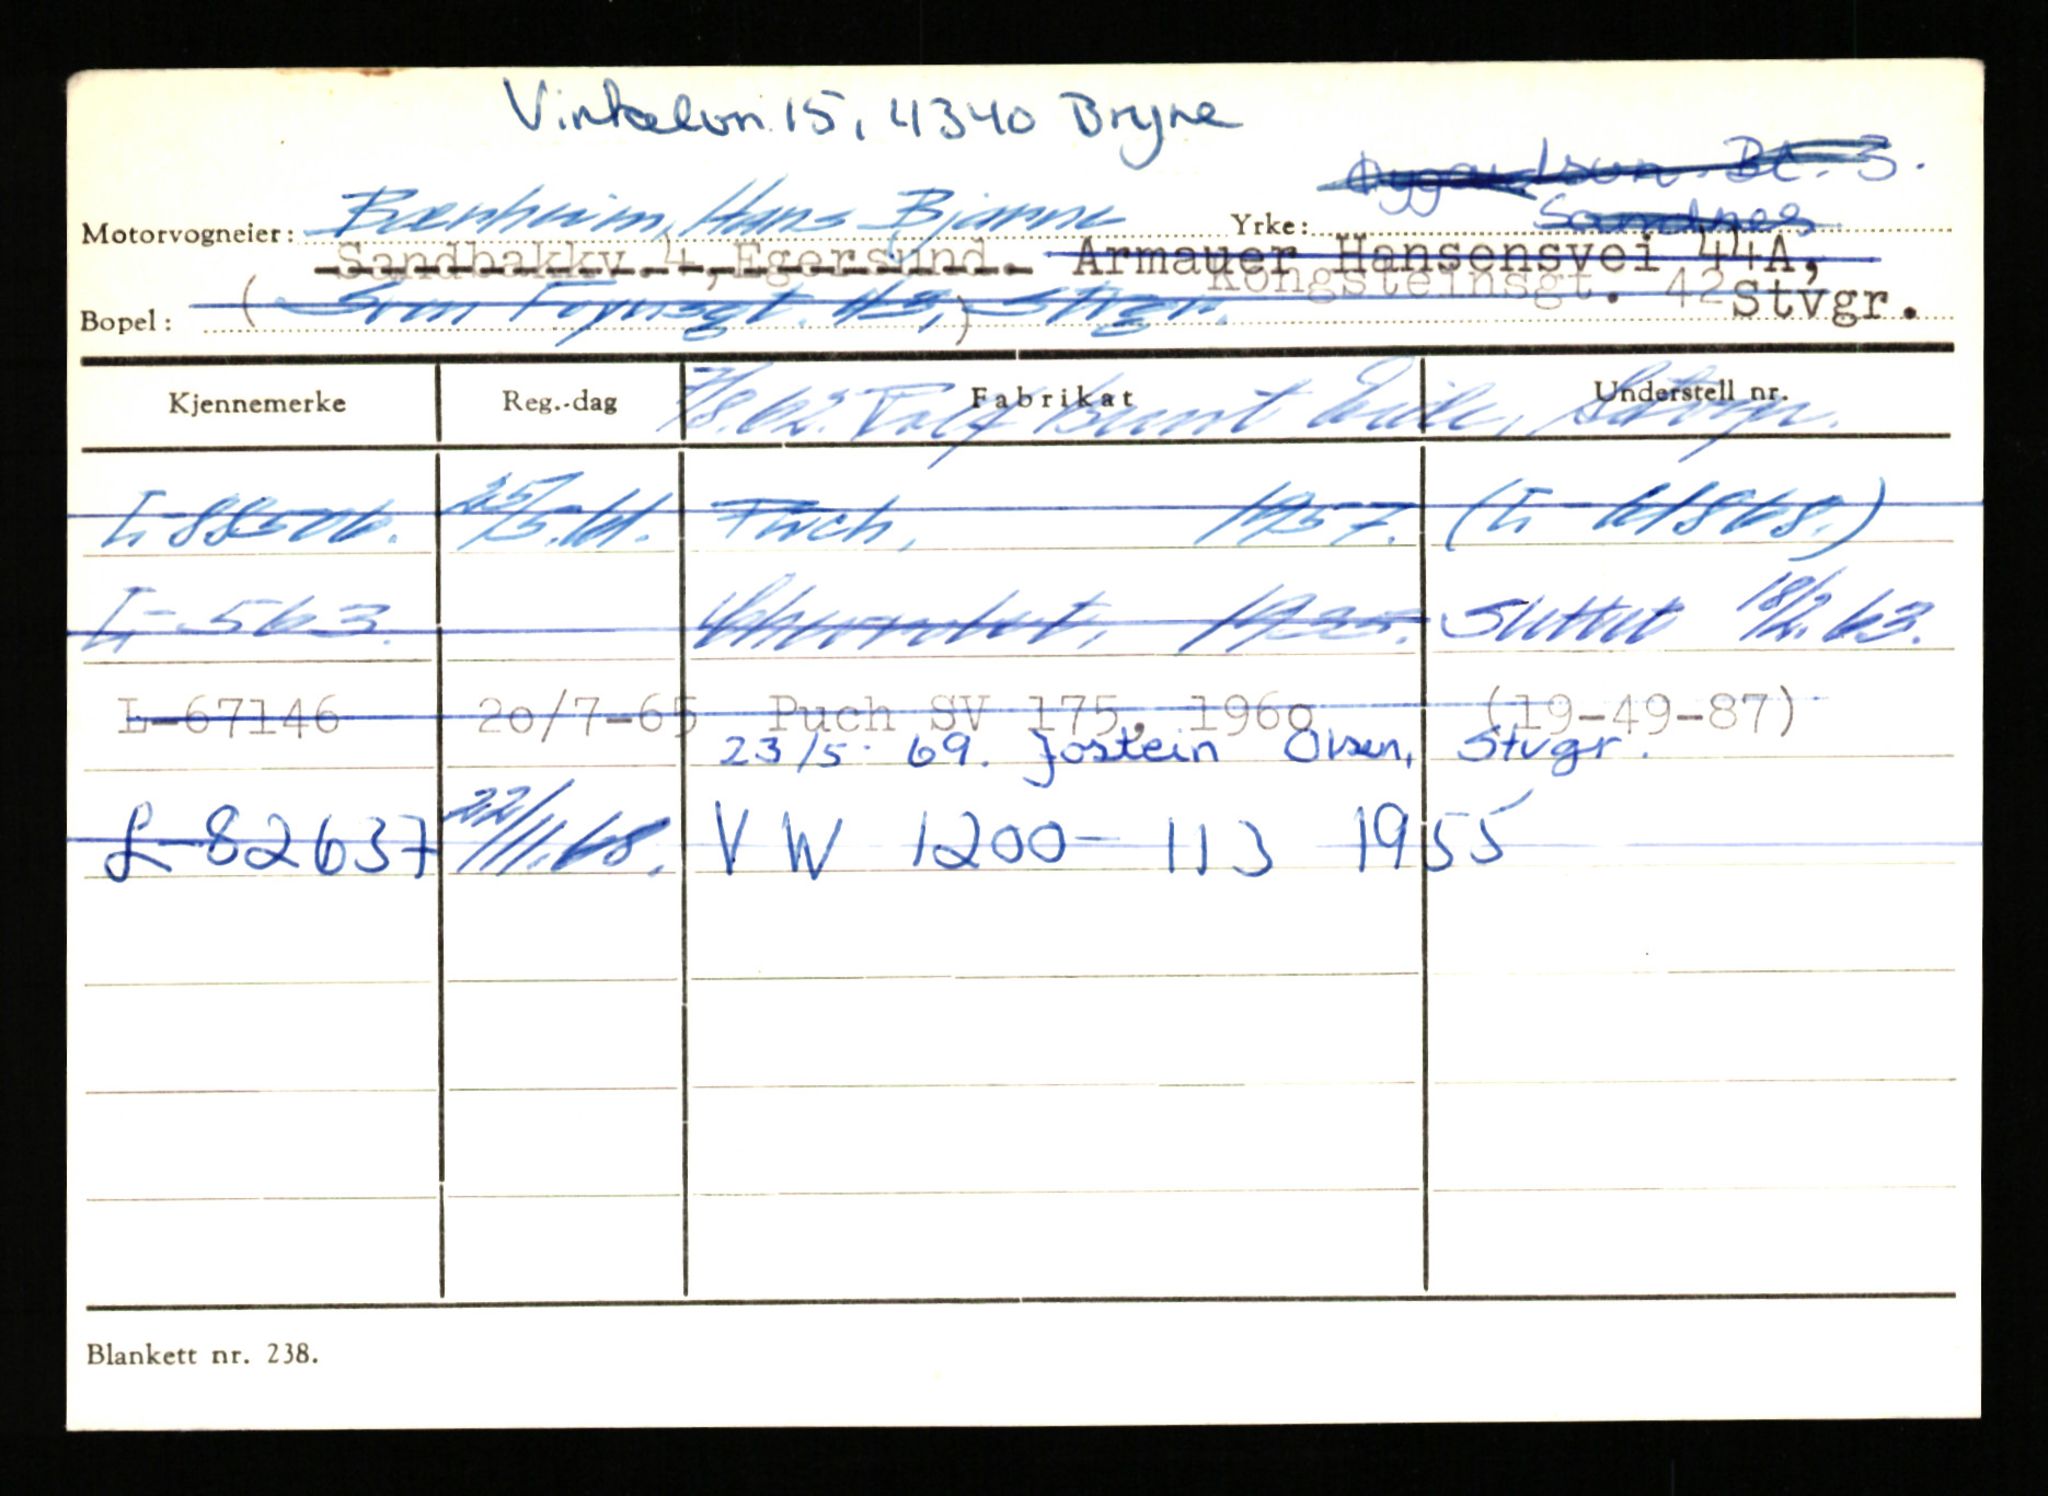 Vinkelvn. 15, 4340 Bryne
Bt. 3.
Motorvogneier: Bærheim, Hans Bjarne Yrke: Sandnes
Sandbakkv. 4, Egersund. Armauer Hansensvei 44A,
Kongsteinsgt. 42 Stvgr.
Bopel: (Sven Foynsgt. 43,) Stvgr.
Kjennemerke Reg.-dag Fabrikat Understell nr.
7/8.62. Bernt Eide, Stvgr.
L-88506. 25/5.61. Puch, 1957. (L-61868.)
L-563. Chevrolet, 1935. Slettet 18/2.63.
L-67146 20/7-65 Puch SV 175, 1960 (19-49-87)
23/5 69. Jostein Olsen, Stvgr.
L-82637 22/11.68. VW 1200-113 1955
Blankett nr. 238.